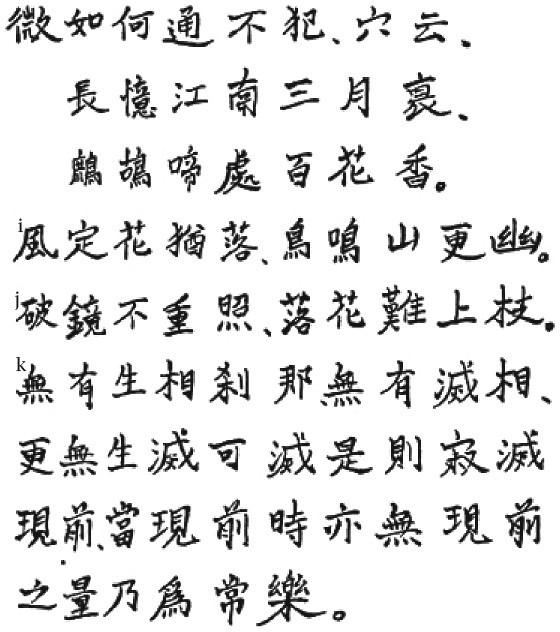 微如何通不犯、穴云、
長憶江南三月裏、
鷓鴣啼處百花香。
i風定花猶落、鳥鳴山更幽。
j破鏡不重照、落花難上枝。
k無有生相刹那、無有滅相、
更無生滅可滅是則寂滅
現前、當現前時亦無現前
之量乃爲常樂。